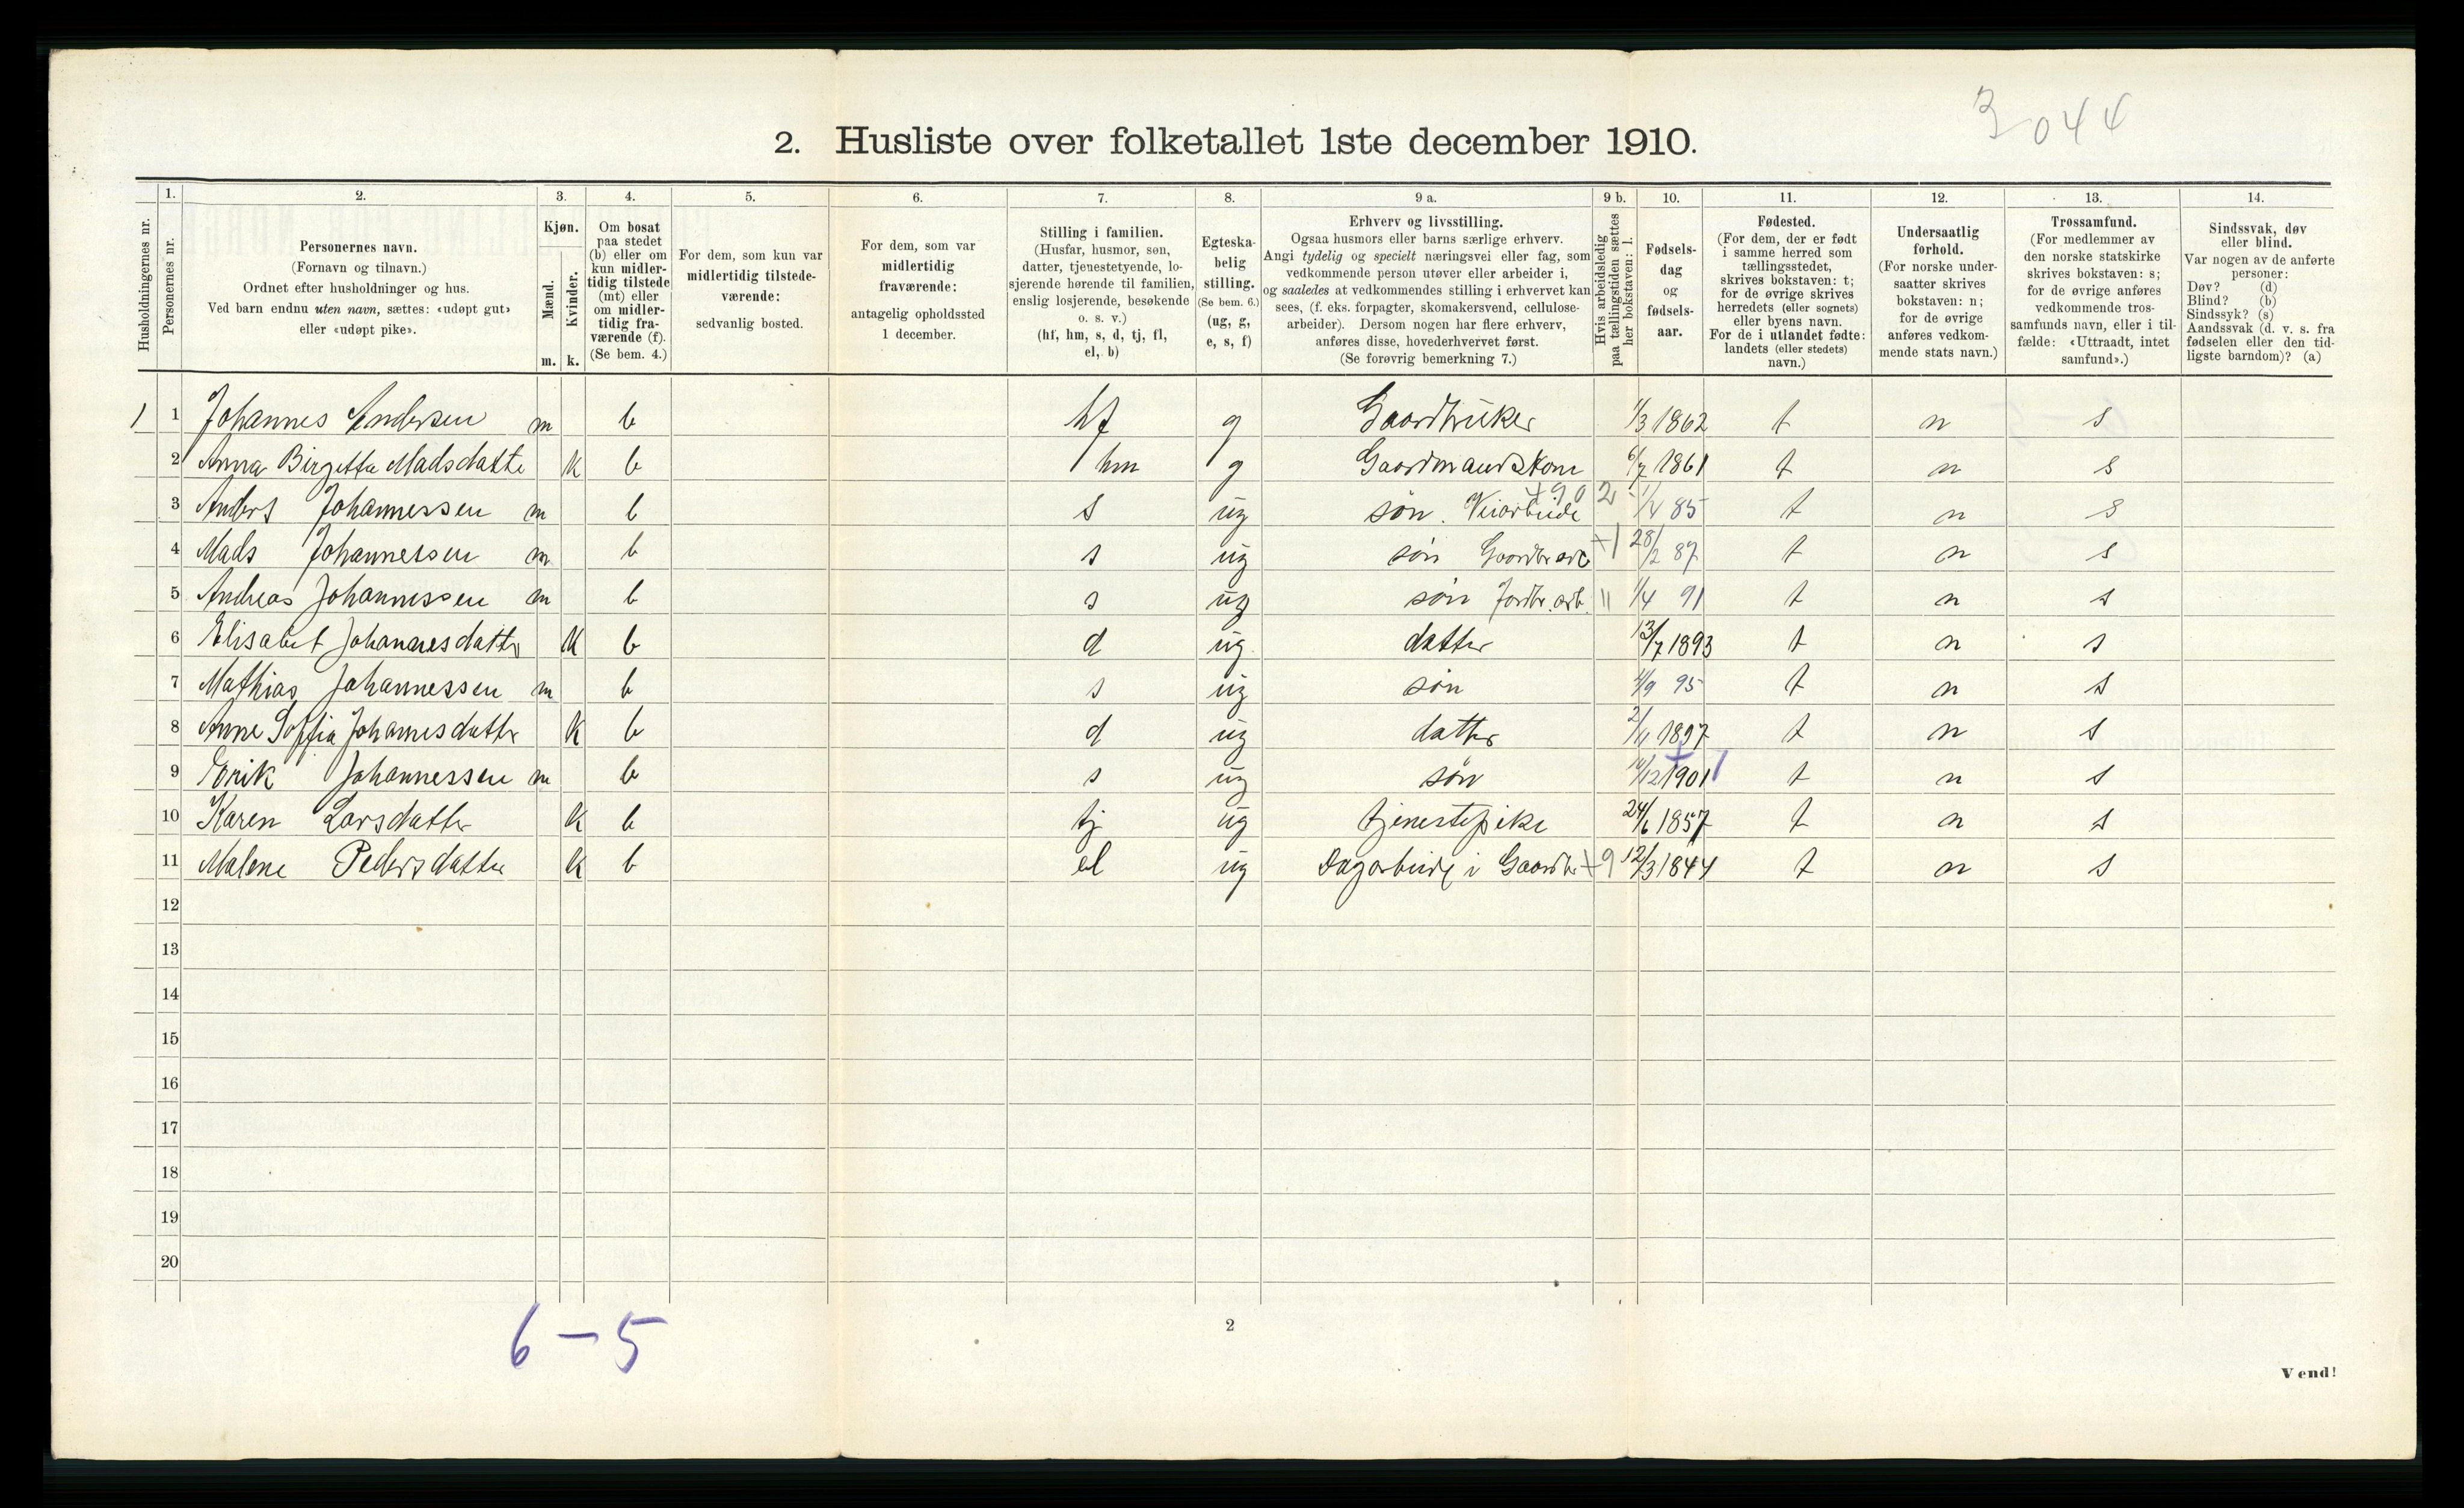 3044
2. Husliste over folketallet 1ste december 1910.
Husholdningernes nr.
1.
Personernes nr.
2.
Personernes navn.
(Fornavn og tilnavn.)
Ordnet efter husholdninger og hus.
Ved barn endnu uten navn, sættes: «udøpt gut»
eller «udøpt pike».
3.
Kjøn.
Mænd.
Kvinder.
m. k.
4.
Om bosat
paa stedet
(b) eller om
kun midler-
tidig tilstede
(mt) eller
om midler-
tidig fra-
værende (f).
(Se bem. 4.)
5.
For dem, som kun var
midlertidig tilstede-
værende:
sedvanlig bosted.
6.
For dem, som var
midlertidig
fraværende:
antagelig opholdssted
1 december.
7.
Stilling i familien.
(Husfar, husmor, søn,
datter, tjenestetyende, lo-
sjerende hørende til familien,
enslig losjerende, besøkende
o. s. v.)
(hf, hm, s, d, tj, fl,
el, b)
8.
Egteska-
belig
stilling.
(Se bem. 6.)
(ug, g,
e, s, f)
9 a.
Erhverv og livsstilling.
Ogsaa husmors eller barns særlige erhverv.
Angi tydelig og specielt næringsvei eller fag, som
vedkommende person utøver eller arbeider i,
og saaledes at vedkommendes stilling i erhvervet kan
sees, (f. eks. forpagter, skomakersvend, cellulose-
arbeider). Dersom nogen har flere erhverv,
anføres disse, hovederhvervet først.
(Se forøvrig bemerkning 7.)
9 b.
Hvis arbeidsledig
paa tællingstiden sættes
her bokstaven: l.
10.
Fødsels-
dag
og
fødsels-
aar.
11.
Fødested.
(For dem, der er født
i samme herred som
tællingsstedet,
skrives bokstaven: t;
for de øvrige skrives
herredets (eller sognets)
eller byens navn.
For de i utlandet fødte:
landets (eller stedets)
navn.)
12.
Undersaatlig
forhold.
(For norske under-
saatter skrives
bokstaven: n;
for de øvrige
anføres vedkom-
mende stats navn.)
13.
Trossamfund.
(For medlemmer av
den norske statskirke
skrives bokstaven: s;
for de øvrige anføres
vedkommende tros-
samfunds navn, eller i til-
fælde: «Uttraadt, intet
samfund».)
14.
Sindssvak, døv
eller blind.
Var nogen av de anførte
personer:
Døv? (d)
Blind? (b)
Sindssyk? (s)
Aandssvak (d. v. s. fra
fødselen eller den tid-
ligste barndom)? (a)
1 1 Johannes Andersen m b hf g Gaardbruker /3 1862 t n s
2 Anna Birgitta Madsdatte K b hm g Gaardmandskone 6/7 1861 t n s
3 Anders Johannessen m b s ug søn. Veiarbeide +90 2 1/4 85 t n s
4 Mads Johannessen m b s ug søn Gaardbr arb +1 28/2 87 t n s
5 Andreas Johannessen m b s ug søn Jordbr. arb. " 1/4 91 t n s
6 Elisabet Johannesdatter K b d ug datter 13/7 1893 t n s
7 Mathias Johannessen m b s ug søn /9 95 t n s
8 Anne Soffia Johannesdatter K b d ug datter 2/11 1897 t n s
9 Erik Johannessen m b s ug søn /12 1901 t n s
10 Karen Larsdatter K b tj ug tjenestepike 24/6 1857 t n s
11 Malene Pedersdatter K b el ug Dagarbeide i Gaardbr +9 12/3 1844 t n s
12
13
14
15
16
17
18
19
20
6 – 5
2
Vend!